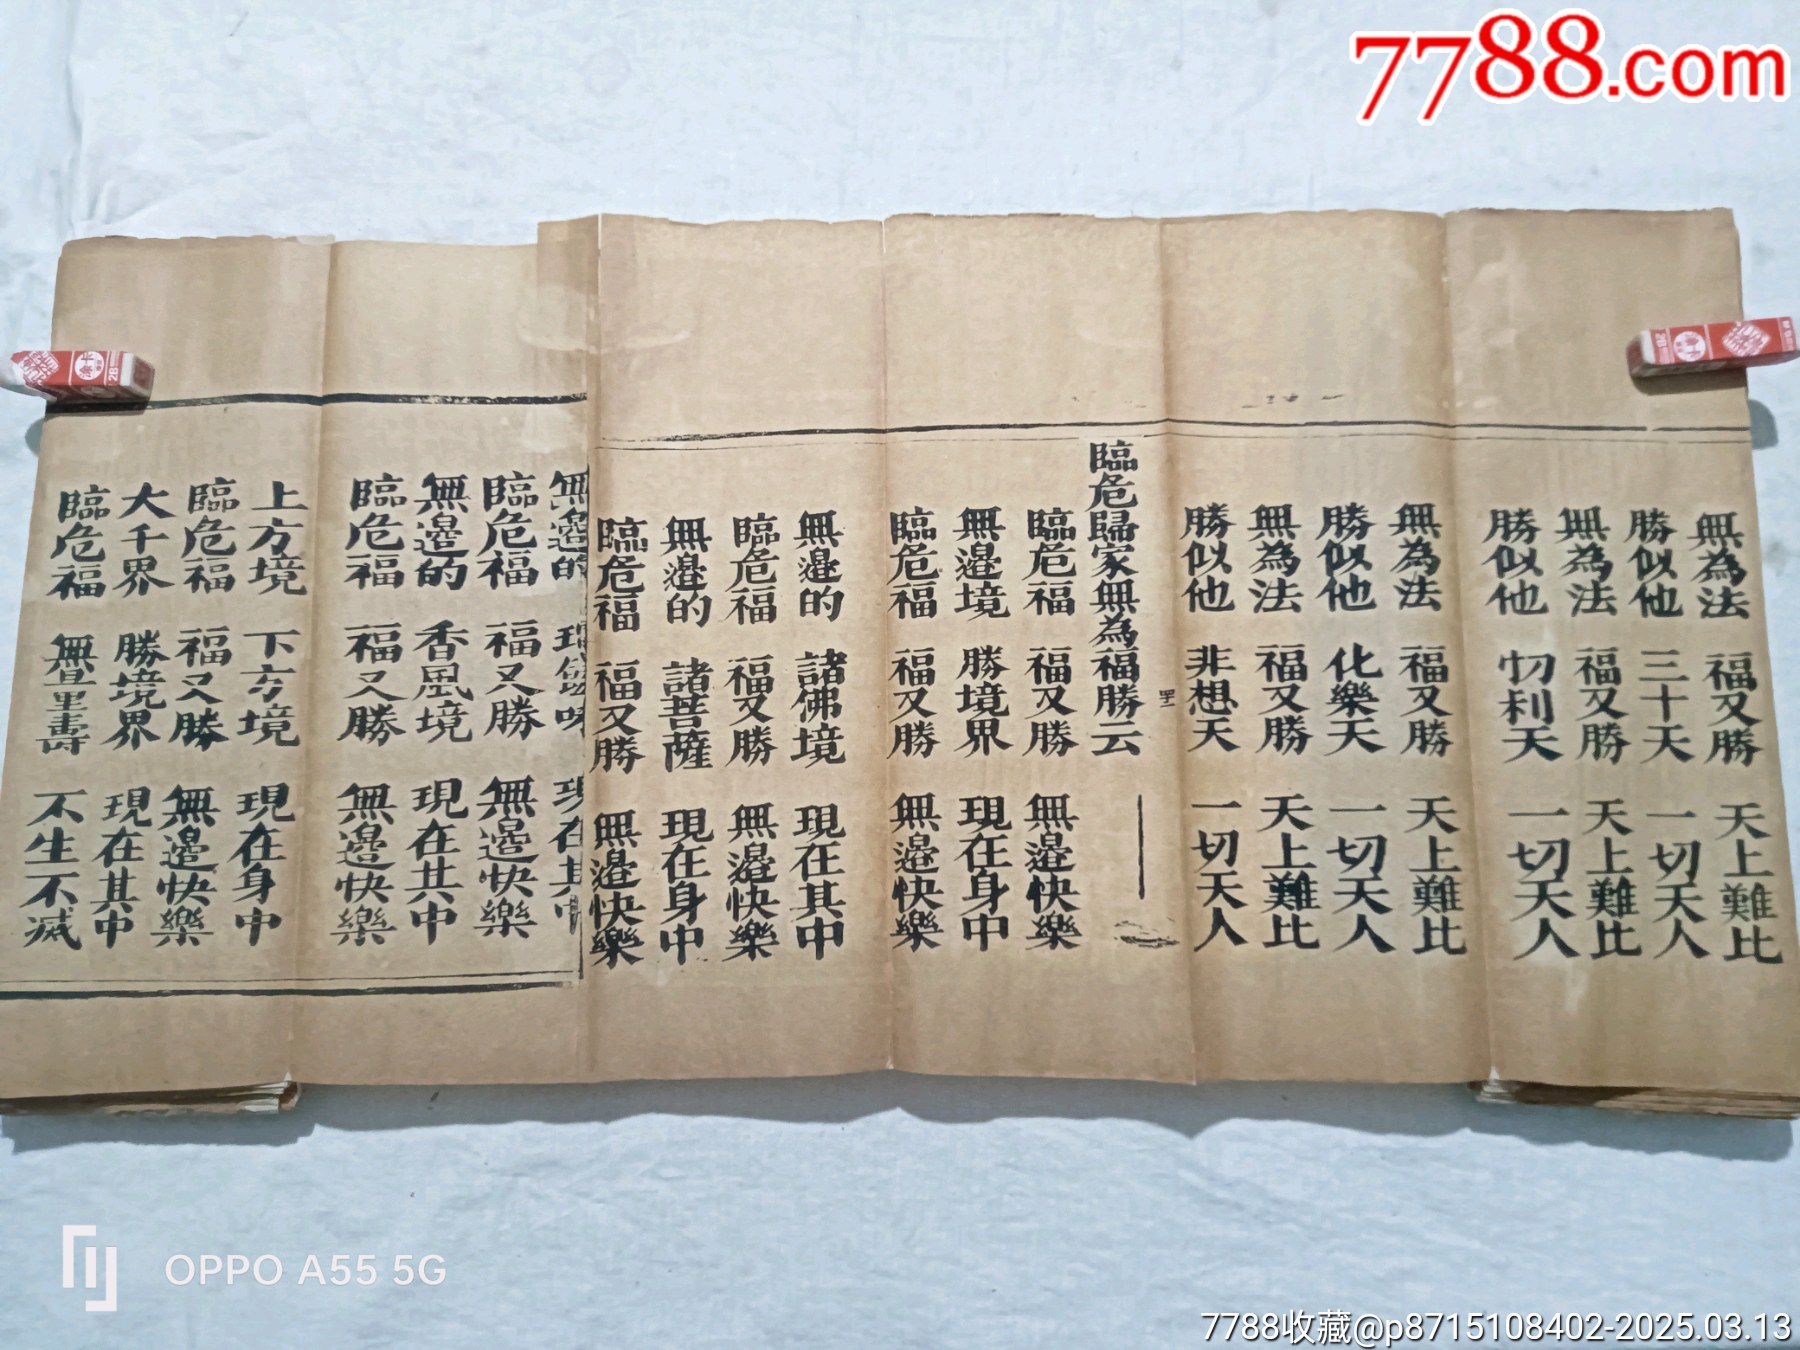 7788.com
無為法 福又勝 天上難比
勝似他 三十天 一切天人
無為法 福又勝 天上難比
勝似他 忉利天 一切天人
無為法 福又勝 天上難比
勝似他 化樂天 一切天人
無為法 福又勝 天上難比
勝似他 非想天 一切天人
臨危歸家無為福勝云
臨危福 福又勝 無邊快樂
無邊境 勝境界 現在身中
臨危福 福又勝 無邊快樂
無邊的 諸佛境 現在其中
臨危福 福又勝 無邊快樂
無邊的 諸菩薩 現在身中
臨危福 福又勝 無邊快樂
無邊的 味 現在其中
臨危福 福又勝 無邊快樂
無邊的 香風境 現在其中
臨危福 福又勝 無邊快樂
上方境 下方境 現在身中
臨危福 福又勝 無邊快樂
大千界 勝境界 現在其中
臨危福 無量壽 不生不滅
OPPO A55 5G
7788收藏@p8715108402-2025.03.13